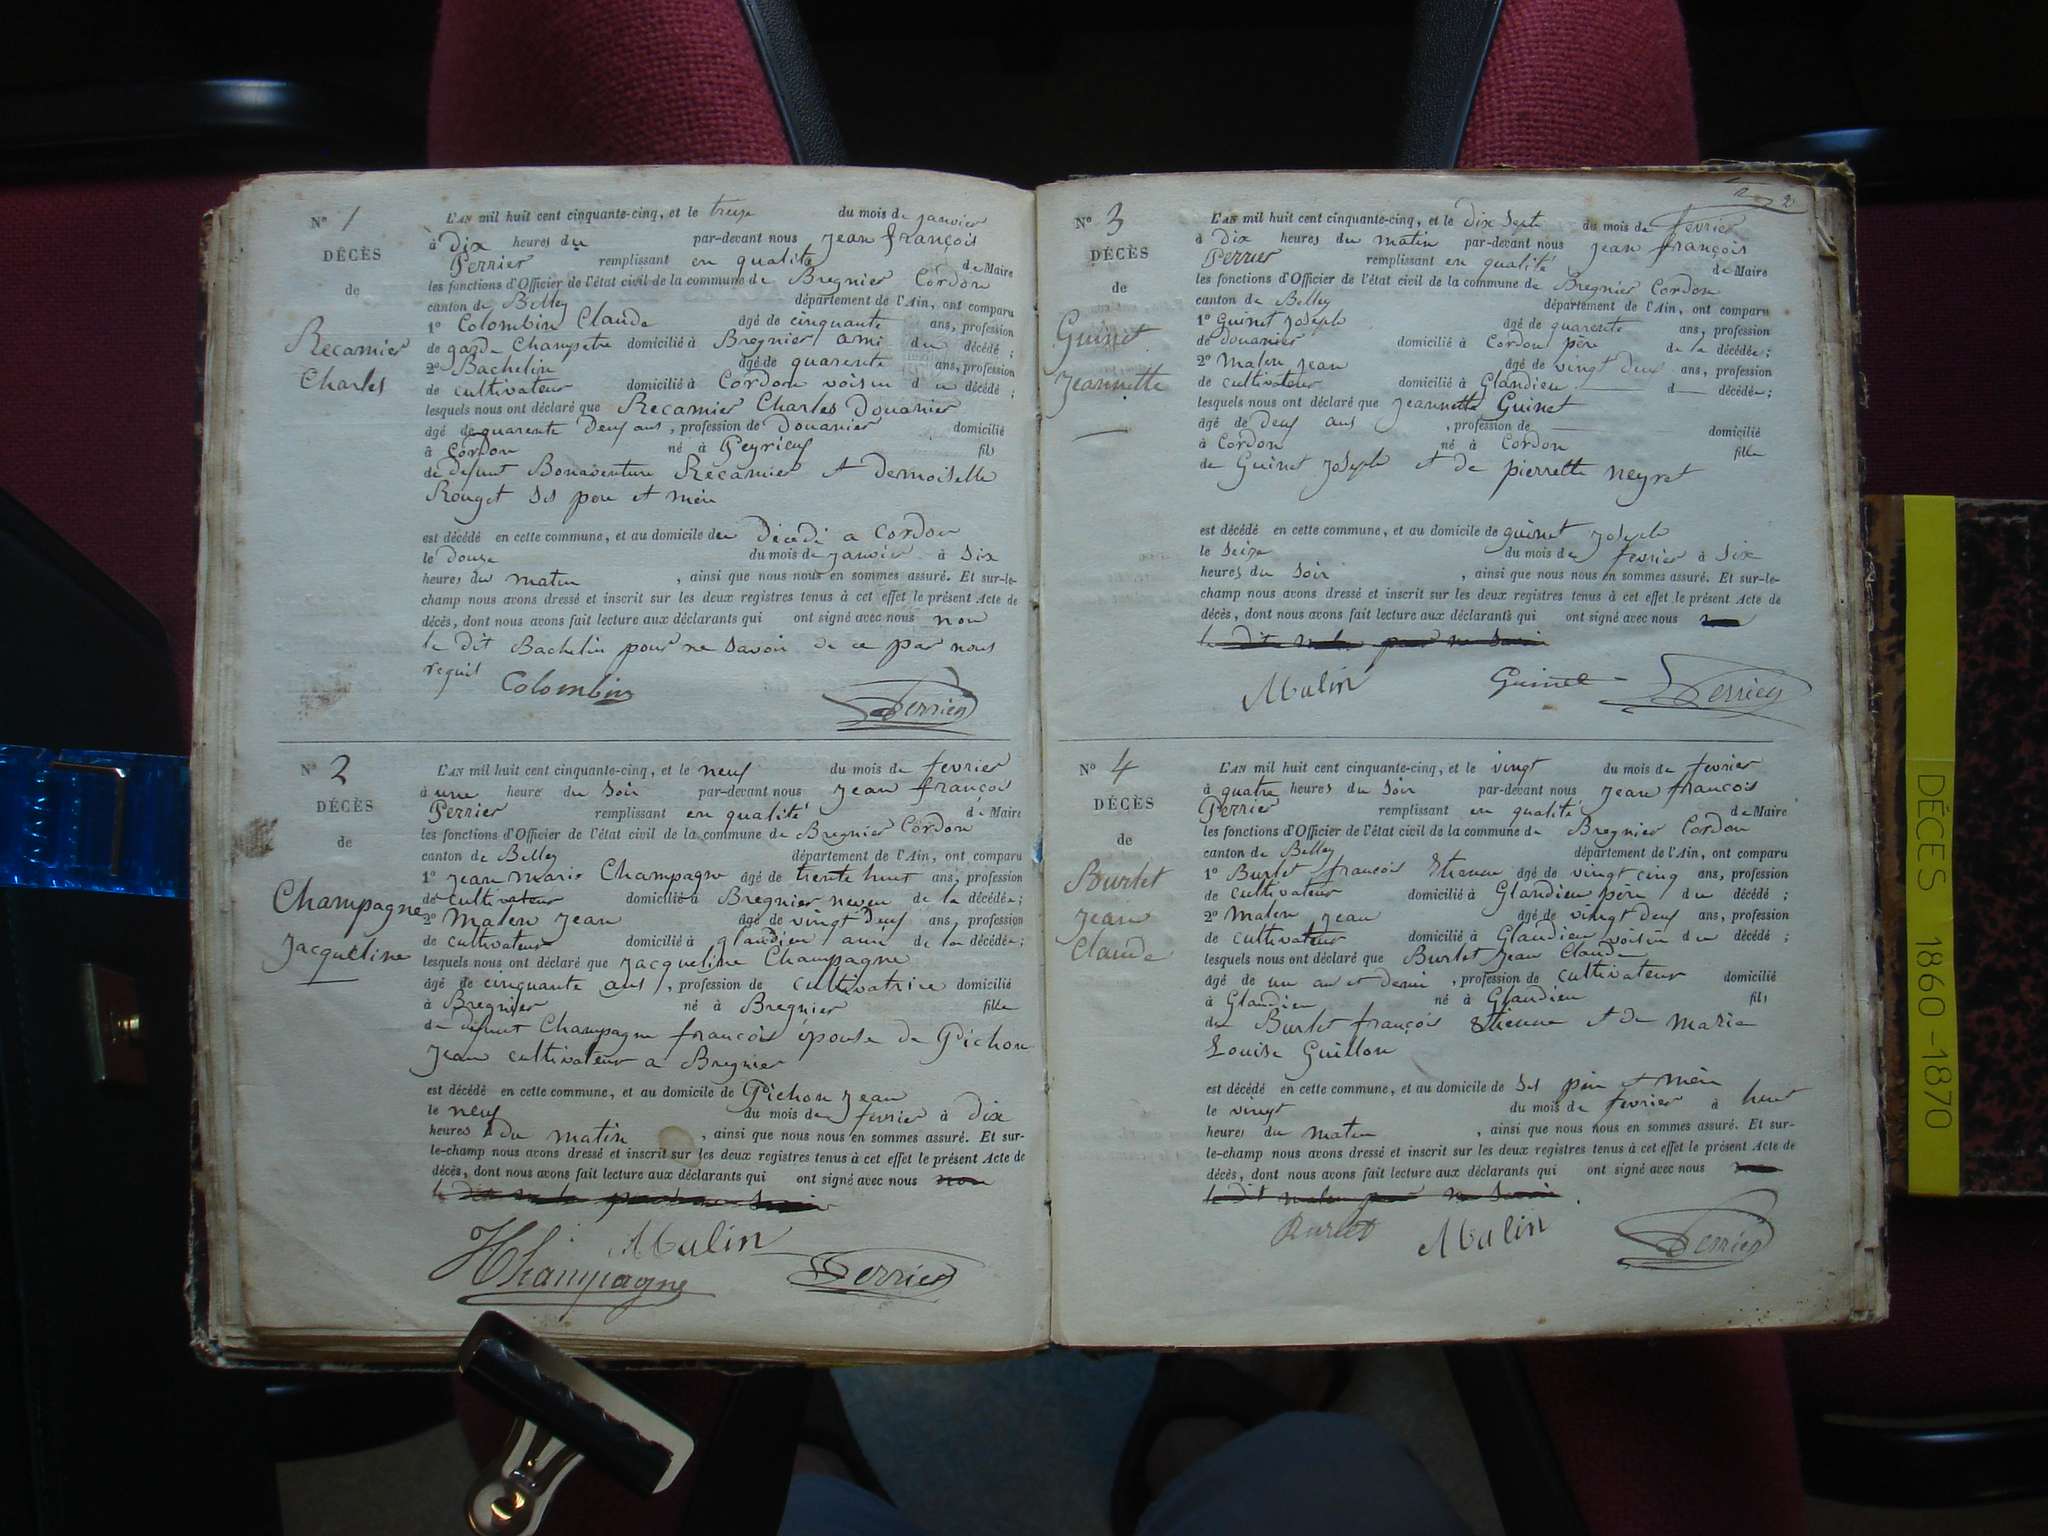 N° 1
DÉCÈS
de
Recamier
Charles
L'AN mil huit cent cinquante-cinq, et le treize du mois de janvier
à Dix heures du par-devant nous Jean François
Perrier remplissant en qualité de Maire
les fonctions d'Officier de l'état civil de la commune de Bregnier Cordon
canton de Belley département de l'Ain, ont comparu
1° Colombin Claude âgé de cinquante ans, profession
de garde Champetre domicilié à Bregnier ami du décédé ;
2° Bachelin âgé de quarente ans, profession
de cultivateur domicilié à Cordon voisin du décédé ;
lesquels nous ont déclaré que Recamier Charles Douanier
âgé de quarente Deux ans, profession de Douanier domicilié
à Cordon né à Peyrieux fils
de defunt Bonaventure Recamier et Demoiselle
Rouget ses pere et mère
est décédé en cette commune, et au domicile du Décédé a Cordon
le Douze du mois de janvier à six
heures du matin , ainsi que nous nous en sommes assuré. Et sur-le-
champ nous avons dressé et inscrit sur les deux registres tenus à cet effet le présent Acte de
décès, dont nous avons fait lecture aux déclarants qui ont signé avec nous non
le dit Bachelin pour ne savoir de ce par nous
requis
Colombin Perrier
N° 2
DÉCÈS
de
Champagne
Jacqueline
L'AN mil huit cent cinquante-cinq, et le neuf du mois de fevrier
à une heure du soir par-devant nous Jean françois
Perrier remplissant en qualité de Maire
les fonctions d'Officier de l'état civil de la commune de Bregnier Cordon
canton de Belley département de l'Ain, ont comparu
1° Jean Marie Champagne âgé de trente huit ans, profession
de cultivateur domicilié à Bregnier neveu de la décédée;
2° Malen Jean âgé de vingt Deux ans, profession
de cultivateur domicilié à glandieu ami de la décédée;
lesquels nous ont déclaré que Jacqueline Champagne
âgé de cinquante ans, profession de cultivatrice domicilié
à Bregnier né à Bregnier fille
de defunt Champagne françois épouse de Pichon
Jean cultivateur a Bregnier
est décédé en cette commune, et au domicile de Pichon Jean
le neuf du mois de fevrier à dix
heures du matin , ainsi que nous nous en sommes assuré. Et sur-
le-champ nous avons dressé et inscrit sur les deux registres tenus à cet effet le présent Acte de
décès, dont nous avons fait lecture aux déclarants qui ont signé avec nous non
Malin
Champagne Perrier
2
N° 3
DÉCÈS
de
Guinet
Jeannette
L'AN mil huit cent cinquante-cinq, et le Dix Sept du mois de fevrier
à Dix heures du matin par-devant nous Jean françois
Perrier remplissant en qualité de Maire
les fonctions d'Officier de l'état civil de la commune de Bregnier Cordon
canton de Belley département de l'Ain, ont comparu
1° Guinet Joseph âgé de quarente ans, profession
de douanier domicilié à Cordon père de la décédée;
2° Malen Jean âgé de vingt deux ans, profession
de cultivateur domicilié à Glandieu d décédée;
lesquels nous ont déclaré que Jeannette Guinet
âgé de Deux ans , profession de domicilié
à Cordon né à Cordon fille
de Guinet Joseph et de pierrette neyret
est décédé en cette commune, et au domicile de guinet Joseph
le seize du mois de fevrier à six
heures du soir , ainsi que nous nous en sommes assuré. Et sur-le-
champ nous avons dressé et inscrit sur les deux registres tenus à cet effet le présent Acte de
décès, dont nous avons fait lecture aux déclarants qui ont signé avec nous
le dit malen pour ne savoir
Malin Guinet Perrier
N° 4
DÉCÈS
de
Burlet
Jean
Claude
L'AN mil huit cent cinquante-cinq, et le vingt du mois de fevrier
à quatre heures du soir par-devant nous Jean françois
Perrier remplissant en qualité de Maire
les fonctions d'Officier de l'état civil de la commune de Bregnier Cordon
canton de Belley département de l'Ain, ont comparu
1° Burlet françois Etienne âgé de vingt cinq ans, profession
de cultivateur domicilié à Glandieu père du décédé ;
2° Malen Jean âgé de vingt Deux ans, profession
de cultivateur domicilié à Glandieu voisin du décédé ;
lesquels nous ont déclaré que Burlet Jean Claude
âgé de un an et demi , profession de cultivateur domicilié
à Glandieu né à Glandieu fils
de Burlet françois Etienne et de Marie
Louise Guillon
est décédé en cette commune, et au domicile de ses père et mère
le vingt du mois de fevrier à huit
heures du matin , ainsi que nous nous en sommes assuré. Et sur-
le-champ nous avons dressé et inscrit sur les deux registres tenus à cet effet le présent Acte de
décès, dont nous avons fait lecture aux déclarants qui ont signé avec nous
le dit malen pour ne savoir
Burlet Malin Perrier
DÉCES 1860-1870